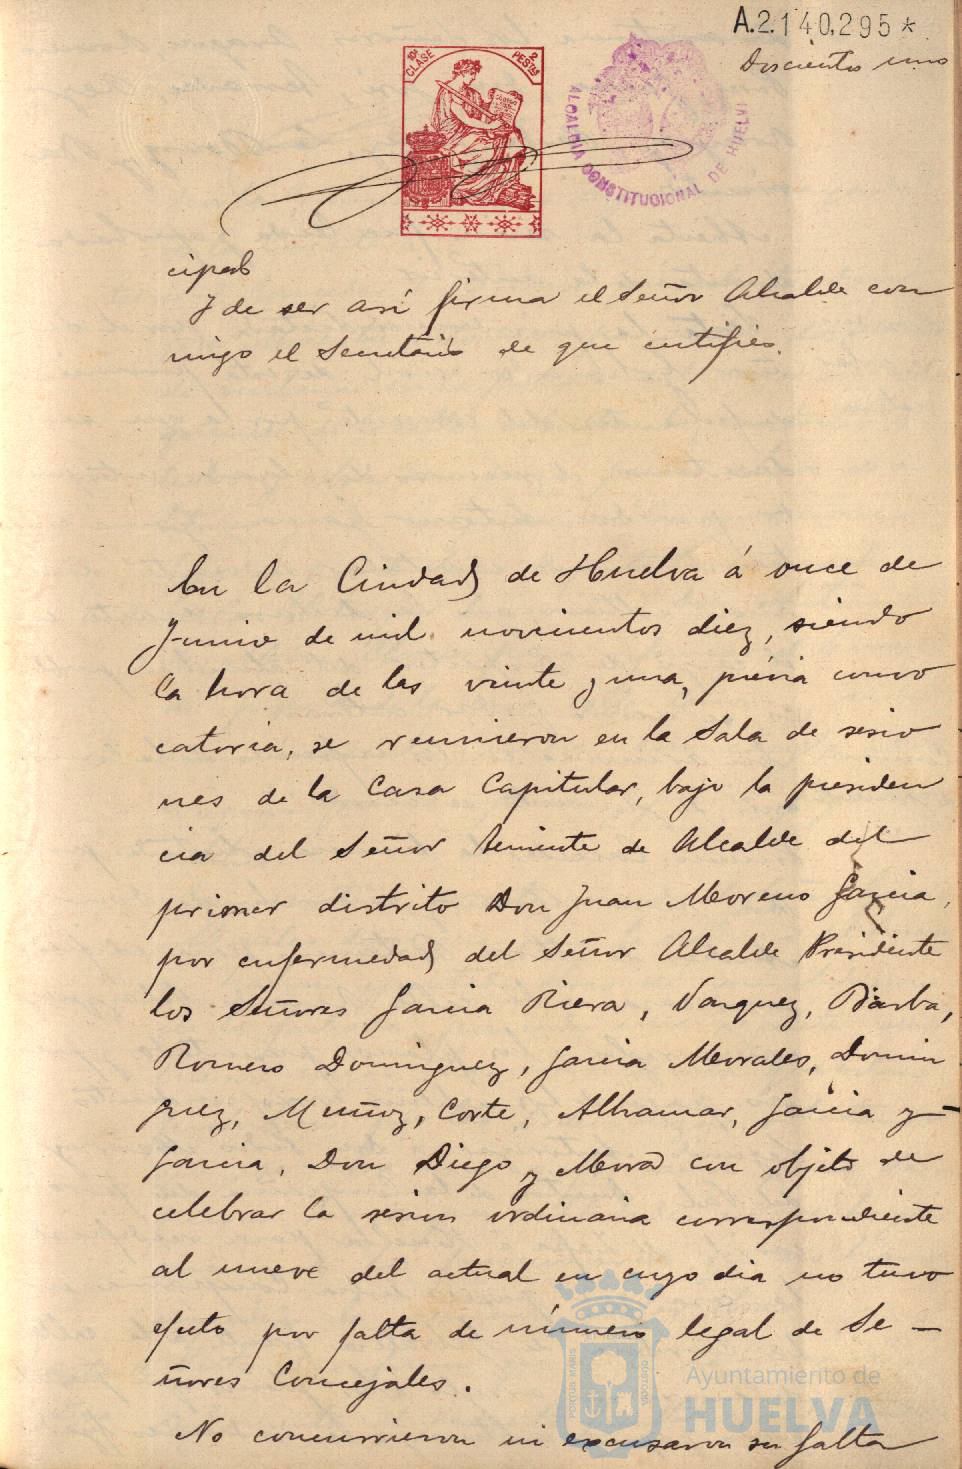 A.2.140,295*
Doscientos uno
10ª CLASE
2 PESTAS
ALCALDIA CONSTITUCIONAL DE HUELVA
cipal
Y de ser así firma el Señor Alcalde con
migo el Secretario de que certifico.
En la Ciudad de Huelva á once de
Junio de mil novecientos diez, siendo
la hora de las veinte y una, prévia convo
catoria, se reunieron en la Sala de sesio
nes de la Casa Capitular, bajo la presiden
cia del Señor teniente de Alcalde del
primer distrito Don Juan Moreno García,
por enfermedad del Señor Alcalde Presidente
los Señores García Riera, Vazquez, Barba,
Romero Dominguez, García Morales, Domin
guez, Muñoz, Corte, Alhamar, García y
García, Don Diego y Mora con objeto de
celebrar la sesion ordinaria correspondiente
al nueve del actual en cuyo dia no tuvo
efecto por falta de número legal de Se-
ñores Concejales.
No concurrieron ni excusaron su falta
Ayuntamiento de
HUELVA